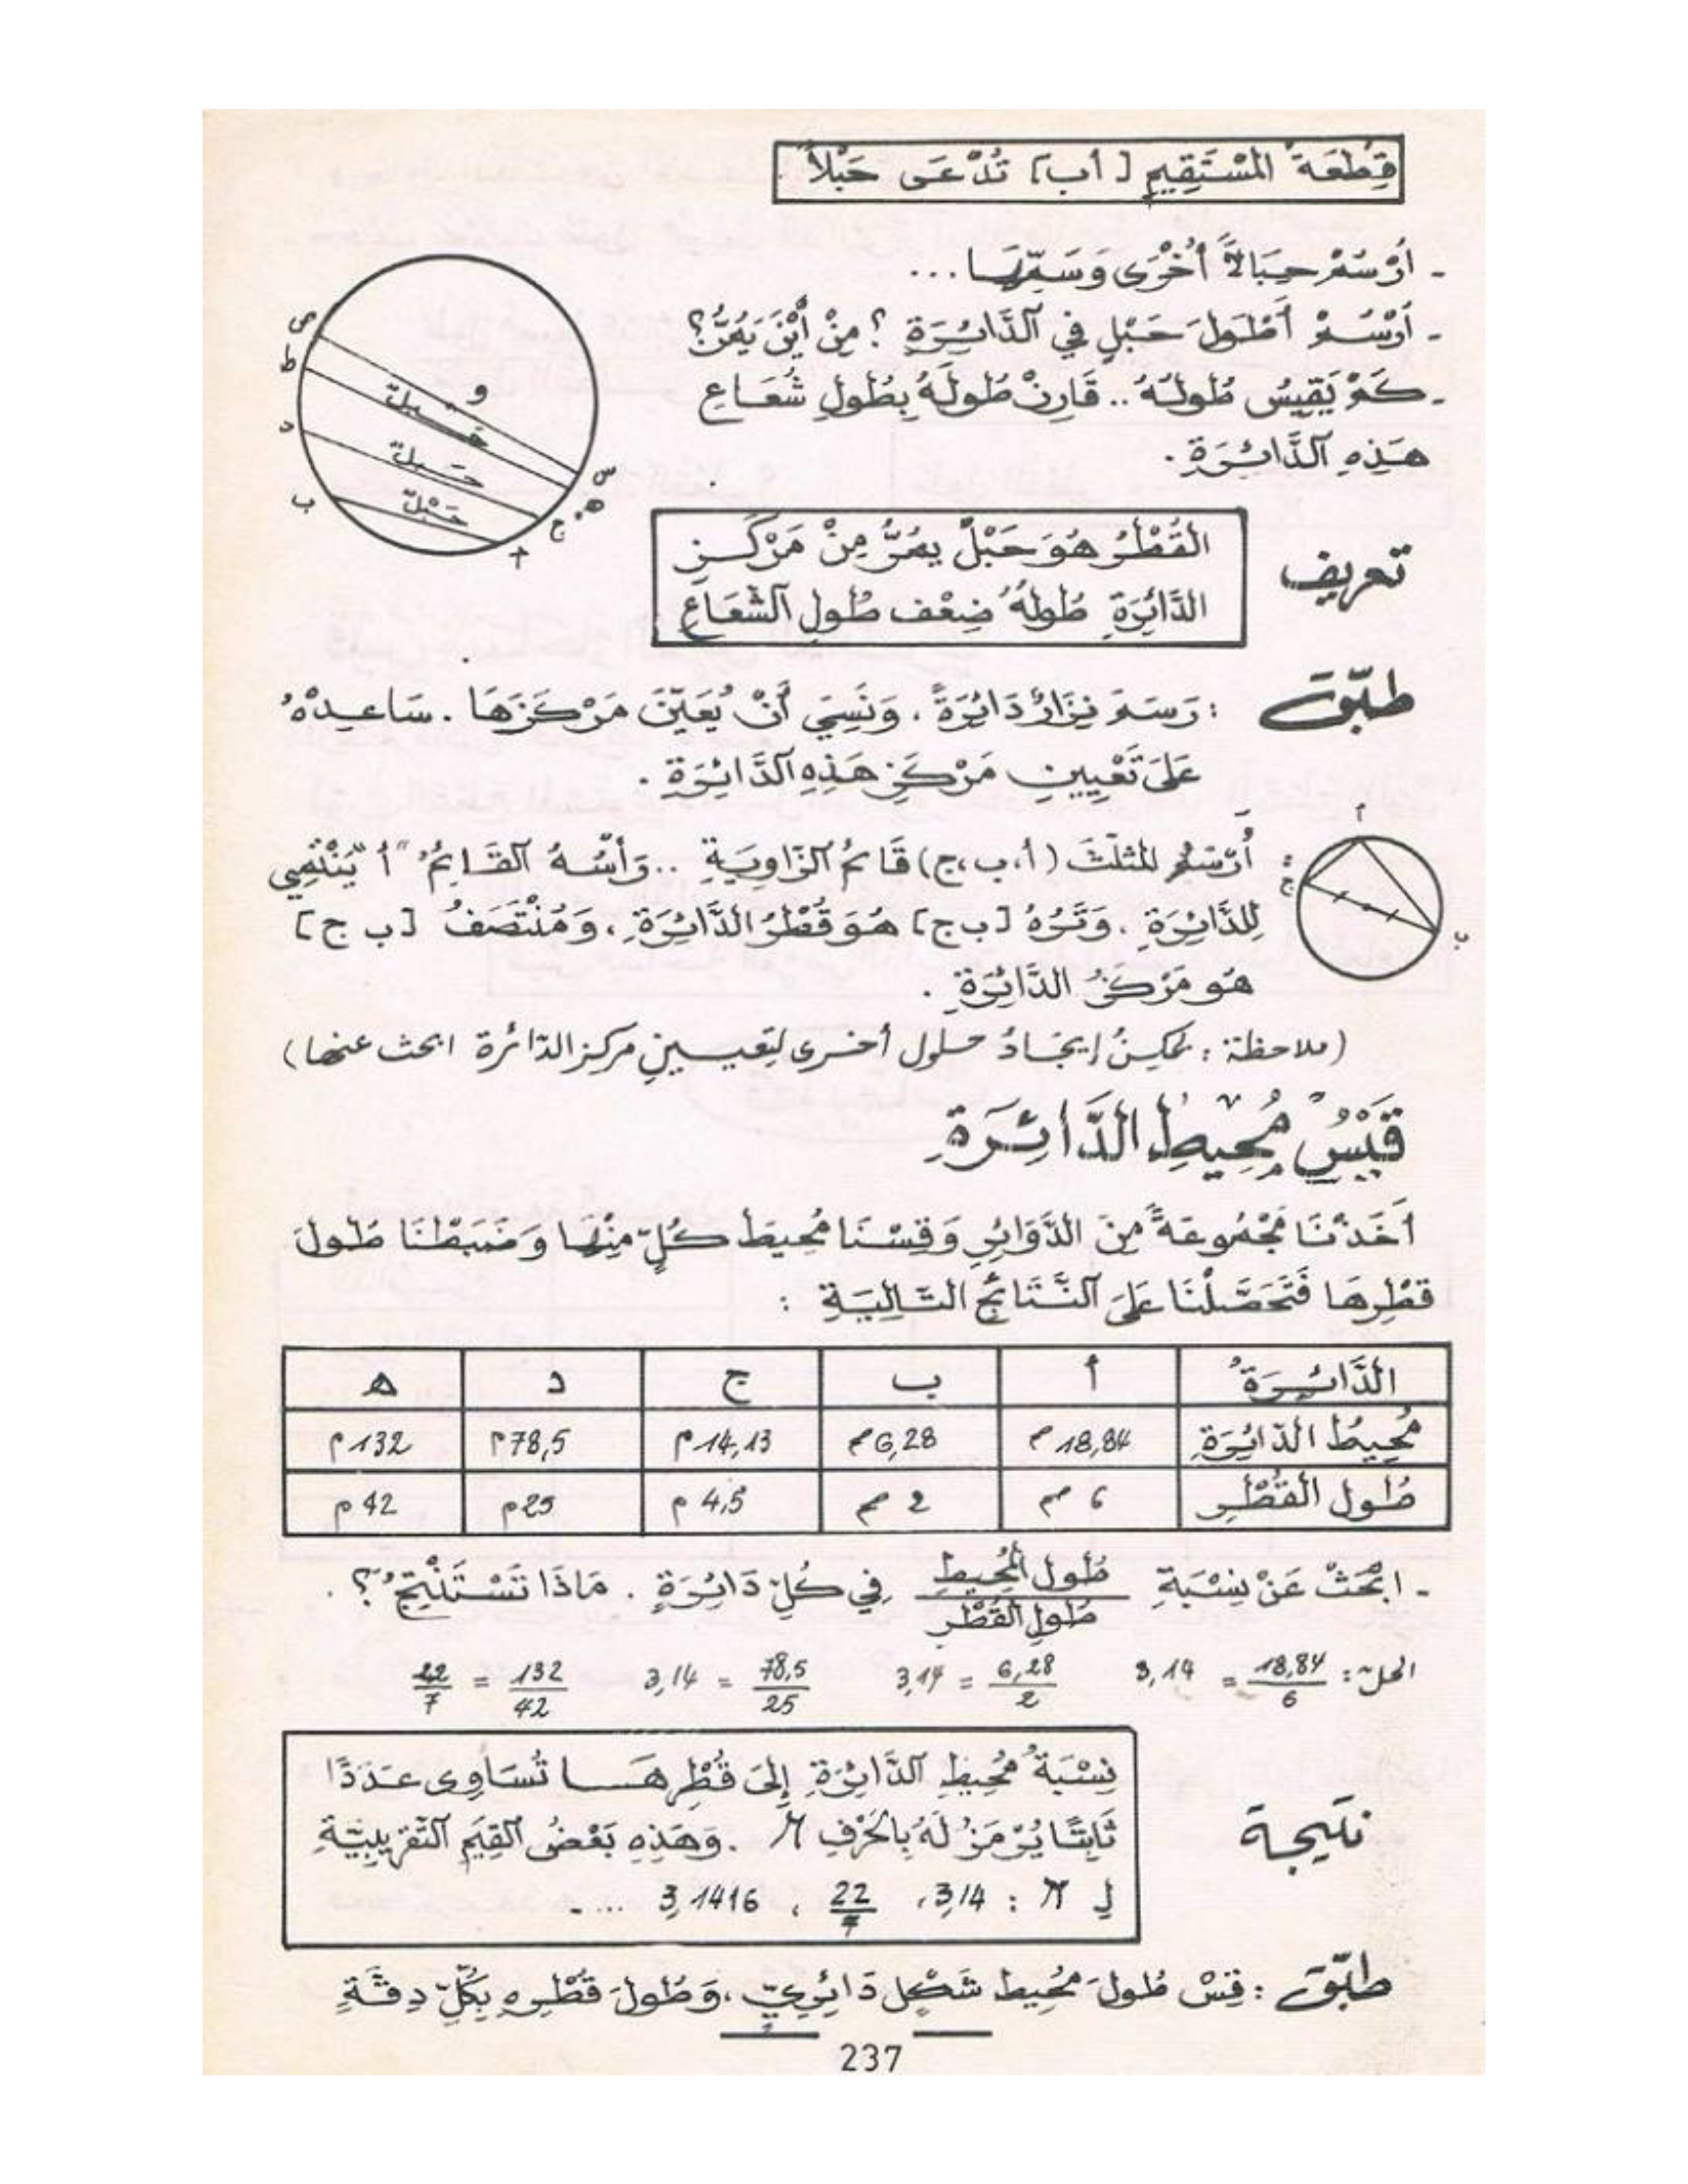 قِطْعَةُ المُسْتَقِيمِ [أب] تُدْعَى حَبْلاً.
- اُرْسُمْ حِبَالاً أُخْرَى وَسَمِّهَا ...
- اُرْسُمْ أَطْوَلَ حَبْلٍ فِي الدَّائِرَةِ ؟ مِنْ أَيْنَ يَمُرُّ؟
- كَمْ يَقِيسُ طُولُهُ .. قَارِنْ طُولَهُ بِطُولِ شُعَاعِ
هَذِهِ الدَّائِرَةِ .
ص
ط
د
ب
و
حَبْل
حَبْل
حَبْل
س
هـ
ج
أ
تعريف
القُطْرُ هُوَ حَبْلٌ يَمُرُّ مِنْ مَرْكَزِ
الدَّائِرَةِ طُولُهُ ضِعْف طُولِ الشُّعَاعِ
طبّق : رَسَمَ نِزَارٌ دَائِرَةً ، وَنَسِيَ أَنْ يُعَيِّنَ مَرْكَزَهَا . سَاعِدْهُ
عَلَى تَعْيِينِ مَرْكَزِ هَذِهِ الدَّائِرَةِ .
أُرْسُمُ المثلّثَ (أ، ب، ج) قَائِمُ الزَّاوِيَةِ .. رَأْسُهُ القَائِمُ "أ" يَنْتَمِي
لِلدَّائِرَةِ . وَتَرُهُ [ب ج] هُوَ قُطْرُ الدَّائِرَةِ ، وَمُنْتَصَفُ [ب ج]
هُوَ مَرْكَزُ الدَّائِرَةِ .
أ
ج
ب
(ملاحظة : يمكنُ إيجَادُ حلول أخرى لتعيينِ مركز الدّائرة ابحث عنها)
قَيْسُ مُحِيطِ الدَّائِرَةِ
أَخَذْنَا مَجْمُوعَةً مِنَ الدَّوَائِرِ وَقِسْنَا مُحِيطَ كُلٍّ مِنْهَا وَضَبَطْنَا طُولَ
قطْرِهَا فَتَحَصَّلْنَا عَلَى النَّتَائِجِ التَّالِيَةِ :
الدَّائِرَةُ أ ب ج د هـ
مُحِيطُ الدّائِرَةِ 18,84 م 6,28 م 14,13 م 78,5 م 132 م
طُول القُطْرِ 6 م 2 م 4,5 م 25 م 42 م
- ابْحَثْ عَنْ نِسْبَةِ طُول المُحِيطِ / طُول القُطْرِ فِي كُلِّ دَائِرَةٍ . مَاذَا تَسْتَنْتِجُ ؟ .
الحلّ : 18,84/6 = 3,14 6,28/2 = 3,14 78,5/25 = 3,14 132/42 = 22/7
نتيجة
نِسْبَةُ مُحِيطِ الدَّائِرَةِ إِلَى قُطْرِهَا تُسَاوِي عَدَدًا
ثَابِتًا يُرْمَزُ لَهُ بِالحَرْفِ π . وَهَذِهِ بَعْضُ القِيَمِ التَّقْرِيبِيَّةِ
لِ π : 3,14 ، 22/7 ، 3,1416 ....
طبّق : قِسْ طُولَ مُحِيط شَكْلٍ دَائِرِيٍّ ، وَطُولَ قُطْرِهِ بِكُلِّ دِقَّةٍ
237